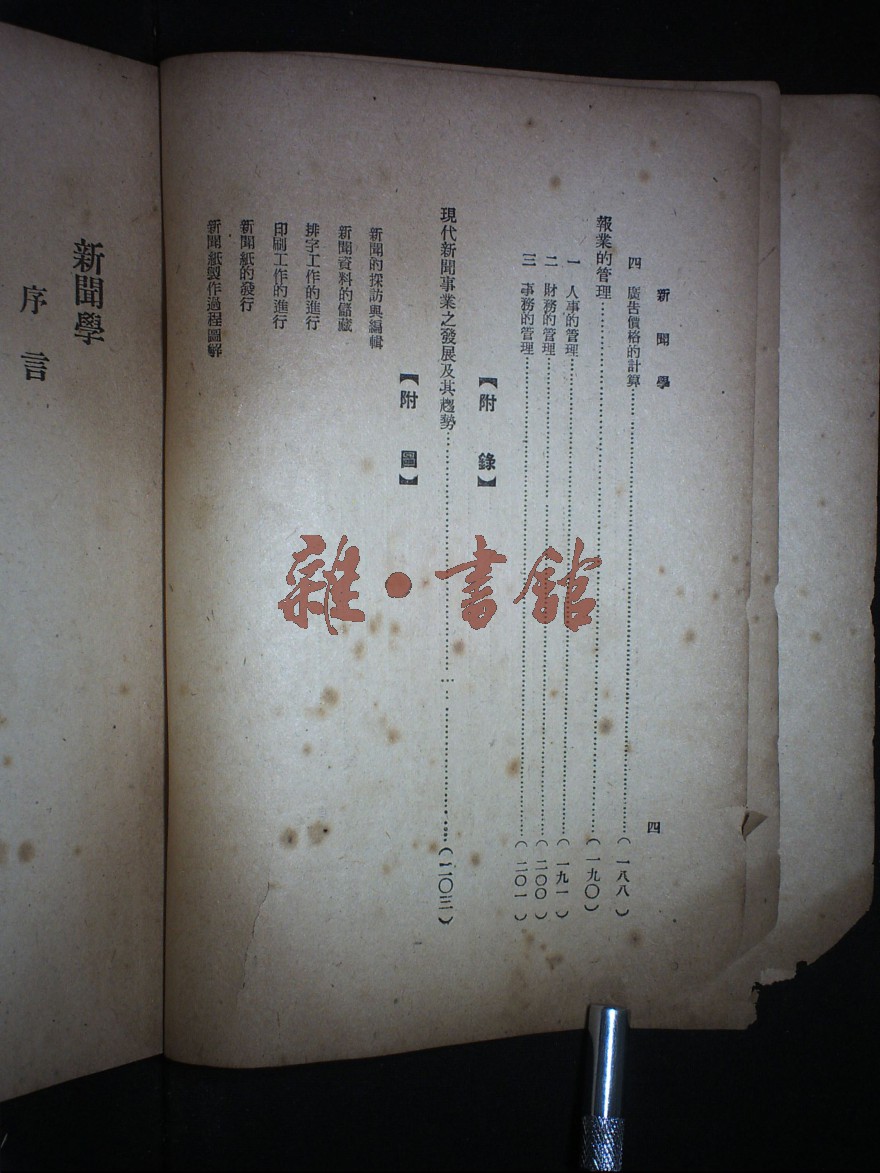 新聞學
四
四 廣告價格的計算……（一八八）
報業的管理……（一九〇）
一 人事的管理……（一九一）
二 財務的管理……（二〇〇）
三 事務的管理……（二〇一）
【附錄】
現代新聞事業之發展及其趨勢……（二〇三）
【附圖】
新聞的採訪與編輯
新聞資料的儲藏
排字工作的進行
印刷工作的進行
新聞紙的發行
新聞紙製作過程圖解
新聞學
序言
雜·書館